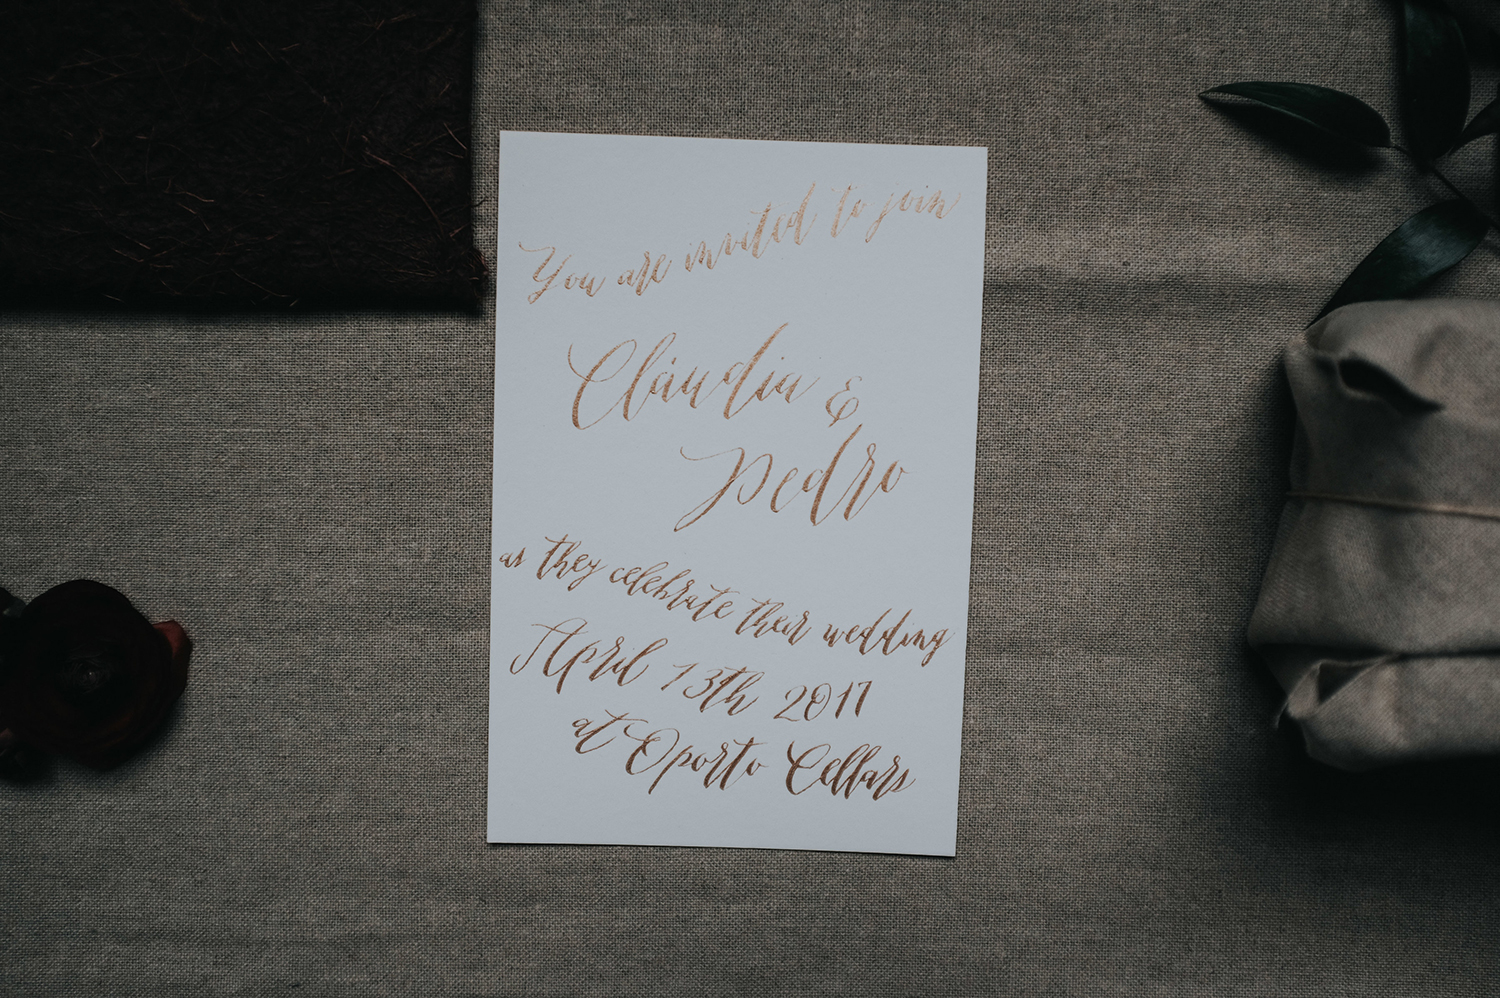 You are invited to join
Claudia &
Pedro
as they celebrate their wedding
April 13th 2017
at Oporto Cellars